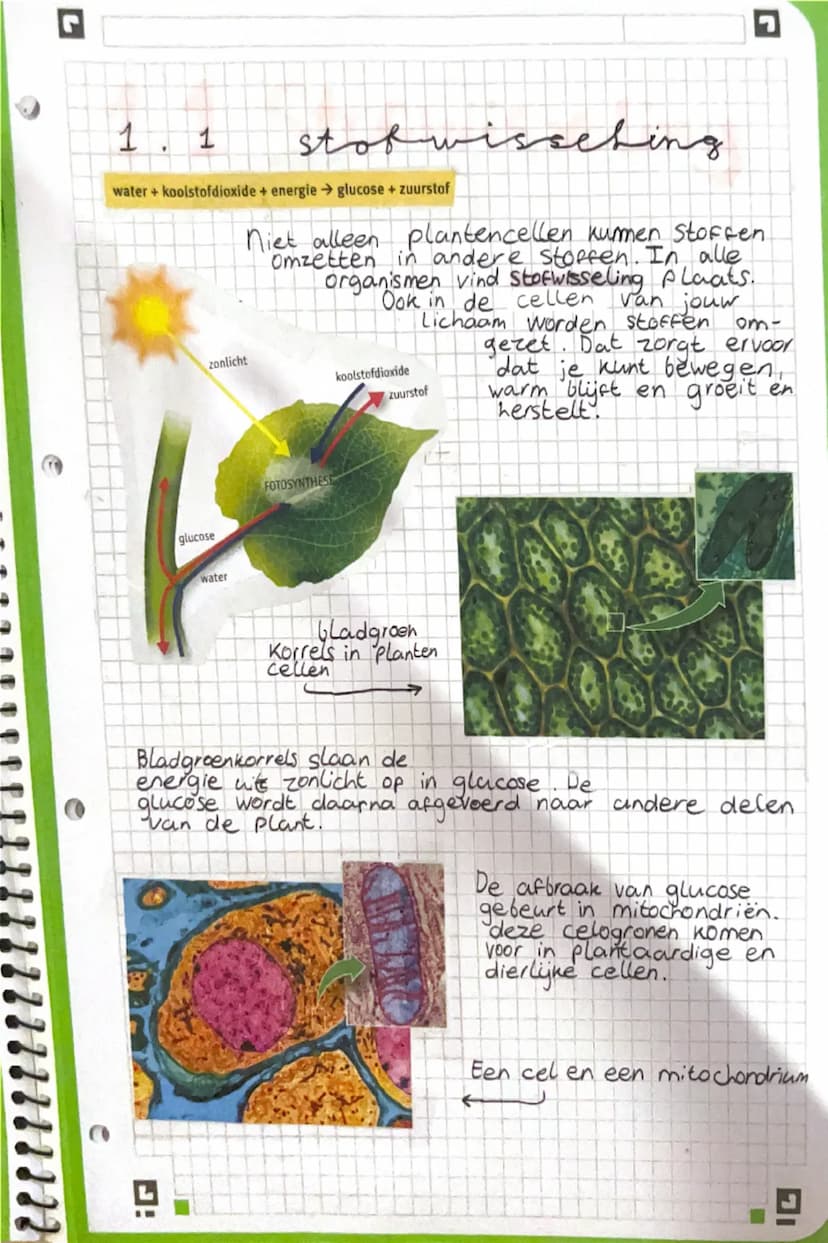 1.1 stofwisseling
water + koolstofdioxide + energie → glucose + zuurstof
Niet alleen plantencellen kunnen stoffen
omzetten in andere stoffen. In alle
organismen vind stofwisseling plaats.
Ook in de cellen van jouw
lichaam worden stoffen om-
gezet. Dat zorgt ervoor
dat je kunt bewegen,
warm blijft en groeit en
herstelt.
zonlicht
koolstofdioxide
zuurstof
FOTOSYNTHESE
glucose
water
bladgroen
korrels in planten
cellen
Bladgroenkorrels slaan de
energie uit zonlicht op in glucose. De
glucose wordt daarna afgevoerd naar andere delen
van de plant.
De afbraak van glucose
gebeurt in mitochondriën.
deze celogronen komen
voor in plantaardige en
dierlijke cellen.
Een cel en een mitochondrium